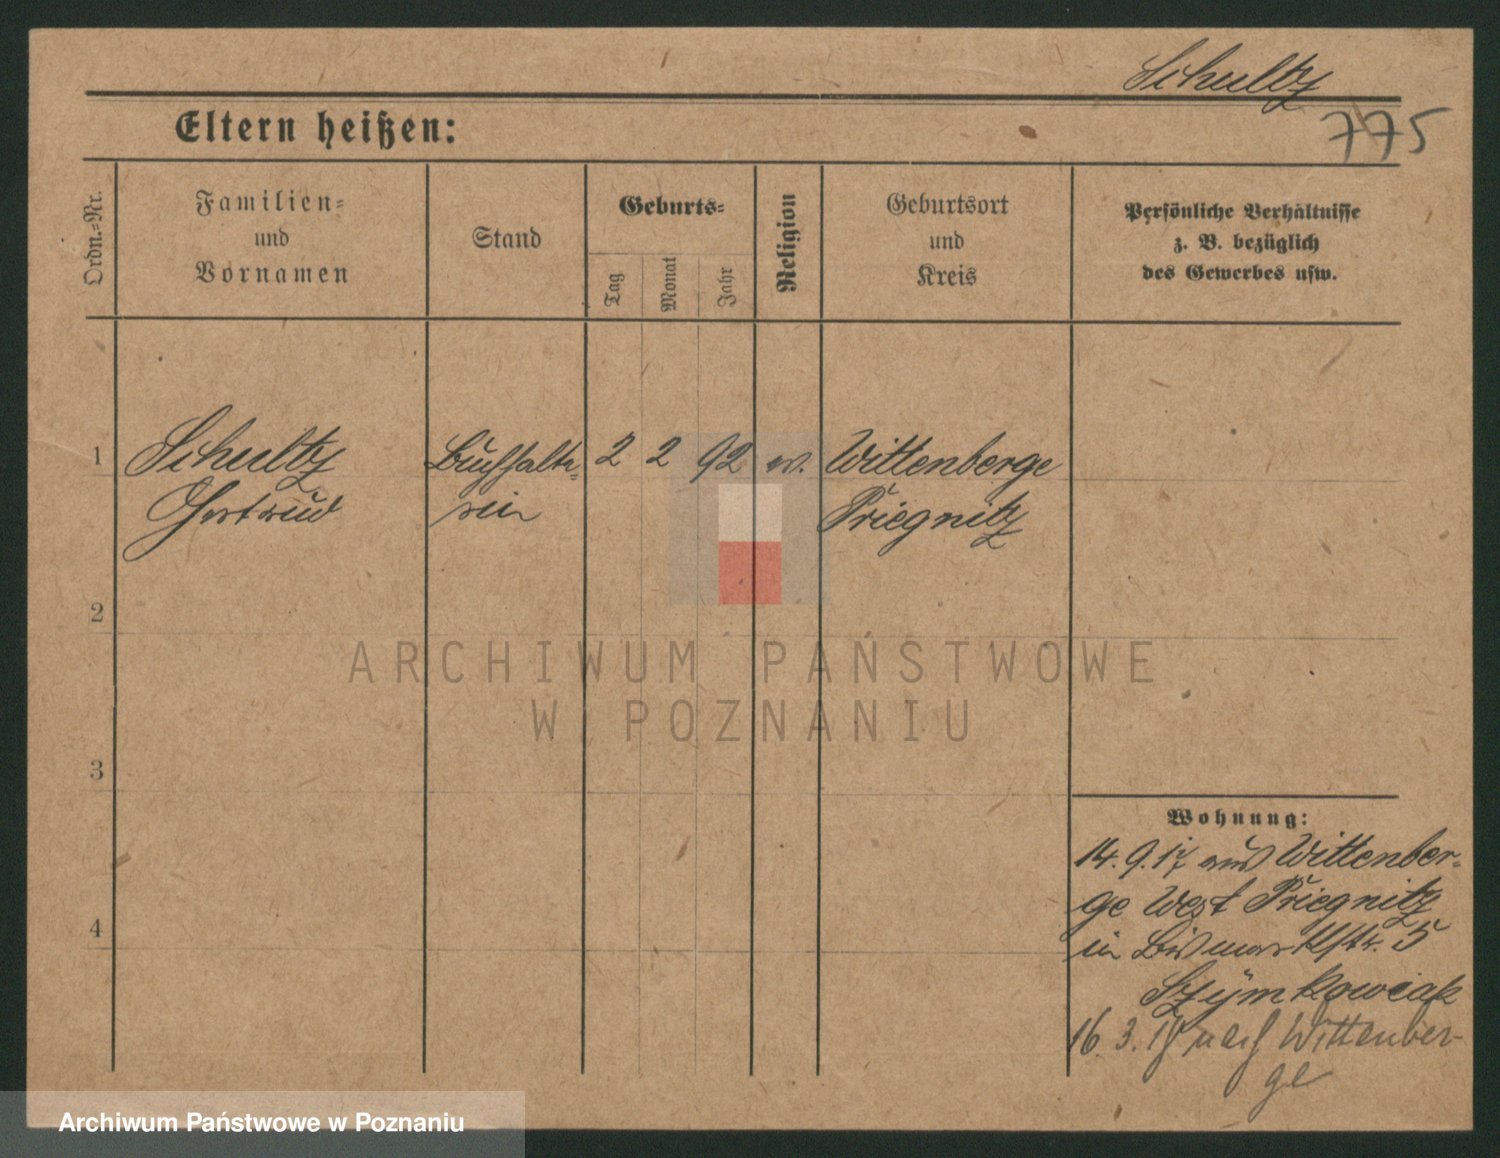 Schultz
775
Eltern heißen:
Ordn.-Nr.
Familien-
und
Vornamen
Stand
Geburts-
Tag
Monat
Jahr
Religion
Geburtsort
und
Kreis
Persönliche Verhältnisse
z. B. bezüglich
des Gewerbes usw.
1 Schultz Buchhalte- 2 2 92 ev. Wittenberge
Gertrud rin Priegnitz
2
3
4
Wohnung:
14.9.17 aus Wittenber-
ge West Priegnitz
in Bismarckstr. 5
Szymkowiak
16.3. nach Wittenber-
ge
ARCHIWUM PAŃSTWOWE
W POZNANIU
Archiwum Państwowe w Poznaniu